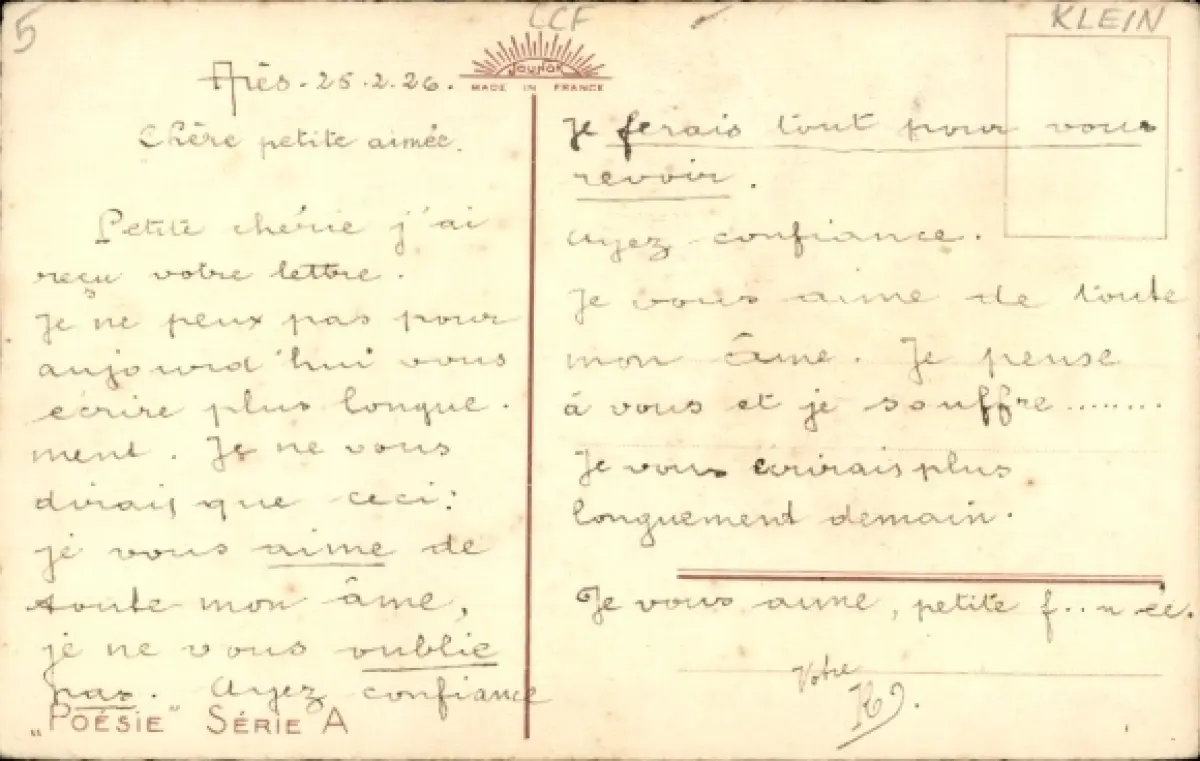 5
CCF
KLEIN
MADE IN FRANCE
25.2.26.
Chère petite aimée.
Petite chérie j'ai
reçu votre lettre.
Je ne peux pas pour
aujourd'hui vous
écrire plus longue.
ment. Je ne vous
dirais que ceci:
je vous aime de
toute mon âme,
je ne vous oublie
pas. Ayez confiance
„POÉSIE" SÉRIE A
Je ferais tout pour vous
revoir.
Ayez confiance.
Je vous aime de toute
mon âme. Je pense
à vous et je souffre........
Je vous écrirais plus
longuement demain.
Je vous aime, petite f..n cé.
Votre